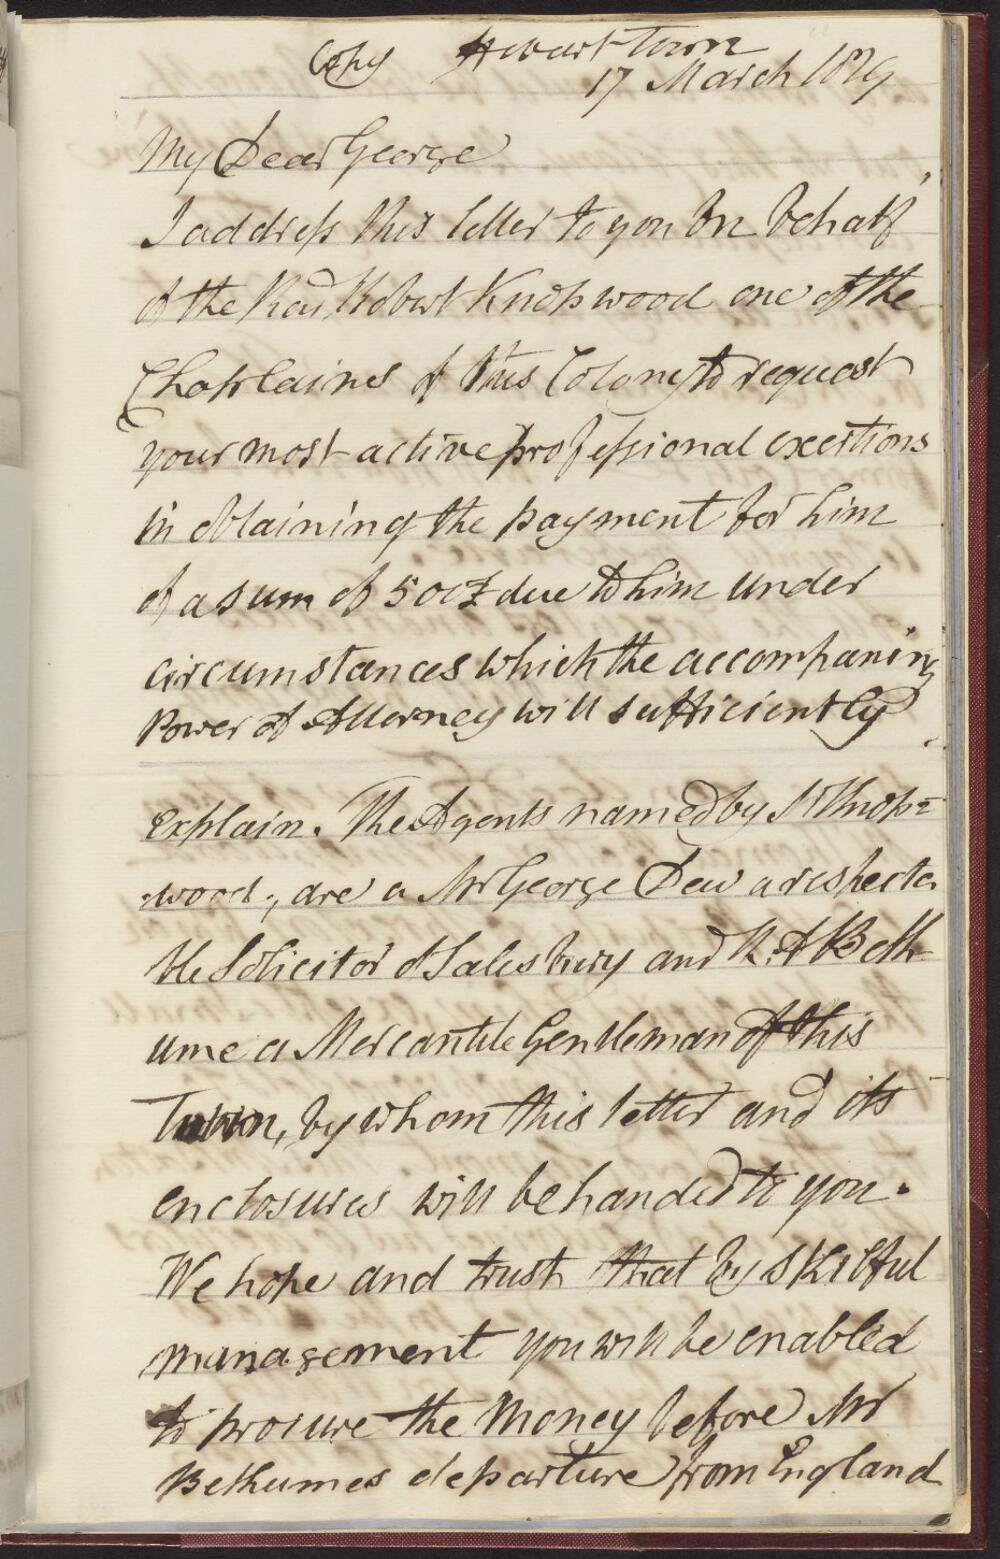 Copy Hobart Town
17 March 1829
My Dear George
I address this letter to you on behalf
of the Revd Robert Knopwood one of the
Chaplaines of this Colony to request
your most active professional exertions
in obtaining the payment for him
of a sum of 500£ due to him under
circumstances which the accompaning
Power of Attorney will sufficiently
explain. The Agents named by Mr Knop=
wood, are a Mr George Dew a respecta
ble Solicitor of Salesbury and R. A Beth
ume a Mercantile Gentleman of this
Town, by whom this letter and its
enclosures will be handed to you.
We hope and trust that by skilful
management you will be enabled
to procure the money before Mr
Bethumes departure from England